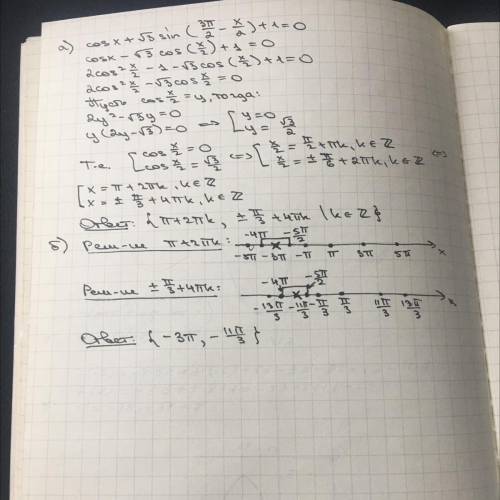 а) cosx + √3 sin(3π/2 - x/2) + 1 = 0
cosx - √3 cos(x/2) + 1 = 0
2cos² x/2 - 1 - √3 cos(x/2) + 1 = 0
2cos² x/2 - √3 cos x/2 = 0
Пусть cos x/2 = y, тогда:
2y² - √3y = 0
y(2y - √3) = 0 => [ y = 0 y = √3/2
Т.е. [ cos x/2 = 0 cos x/2 = √3/2 <=> [ x/2 = π/2 + πk, k∈Z x/2 = ± π/6 + 2πk, k∈Z <=>
[ x = π + 2πk, k∈Z x = ± π/3 + 4πk, k∈Z
Ответ: {π + 2πk, ± π/3 + 4πk | k∈Z}
б) Реш-ие π + 2πk:
-4π -5π/2
-5π -3π -π π 3π 5π x
Реш-ие ± π/3 + 4πk:
-4π -5π/2
-13π/3 -11π/3 -π/3 π/3 11π/3 13π/3 x
Ответ: {-3π, -11π/3}